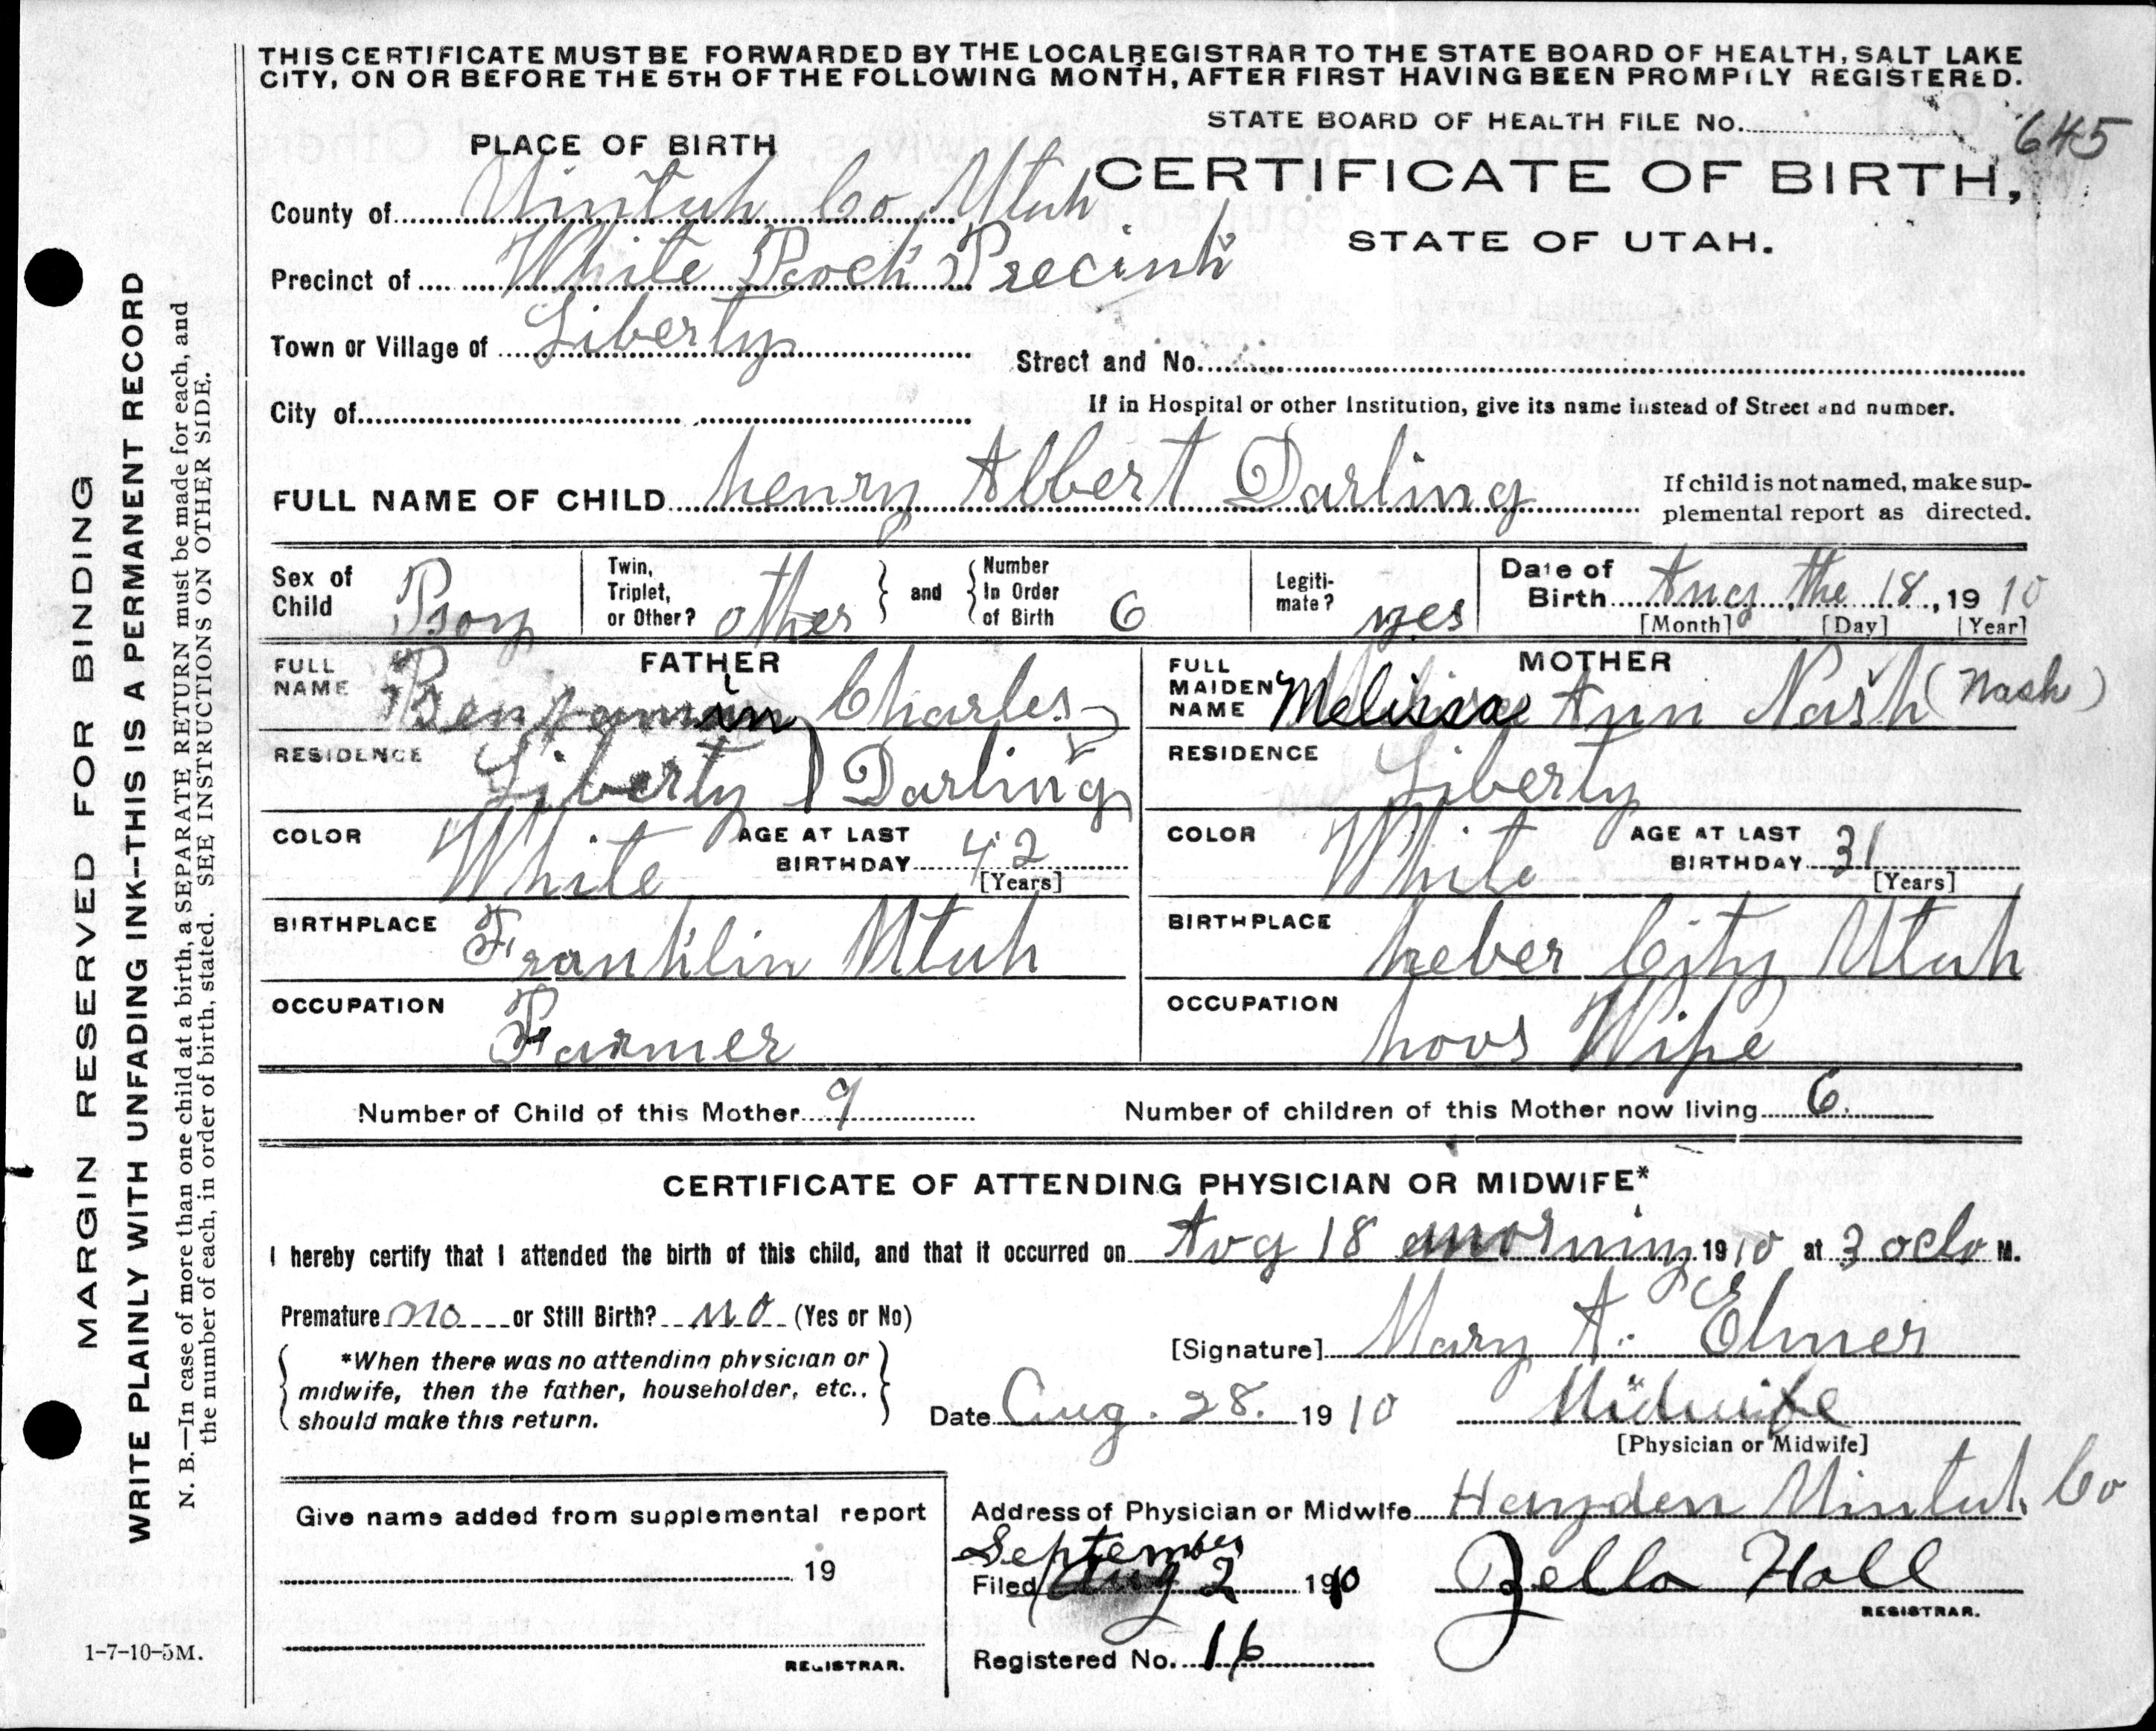 THIS CERTIFICATE MUST BE FORWARDED BY THE LOCAL REGISTRAR TO THE STATE BOARD OF HEALTH, SALT LAKE
CITY, ON OR BEFORE THE 5TH OF THE FOLLOWING MONTH, AFTER FIRST HAVING BEEN PROMPTLY REGISTERED.
STATE BOARD OF HEALTH FILE No. 645
PLACE OF BIRTH
CERTIFICATE OF BIRTH,
STATE OF UTAH.
County of Uintuh Co, Utuh
Precinct of White Rock Precinh
Town or Village of Liberty
Street and No.
City of
If in Hospital or other Institution, give its name instead of Street and number.
FULL NAME OF CHILD henry Albert Darling
If child is not named, make sup-
plemental report as directed.
Sex of Child Boy
Twin, Triplet, or Other? other
and
Number In Order of Birth 6
Legiti-mate? yes
Date of Birth Aug the 18, 1910
[Month] [Day] [Year]
FATHER
FULL NAME Benjamin Charles Darling
RESIDENCE Liberty
COLOR White
AGE AT LAST BIRTHDAY 42
[Years]
BIRTHPLACE Franklin Utuh
OCCUPATION Farmer
MOTHER
FULL MAIDEN NAME Melissa Ann Nash (Nash)
RESIDENCE Liberty
COLOR White
AGE AT LAST BIRTHDAY 31
[Years]
BIRTHPLACE heber City Utuh
OCCUPATION hoos Wife
Number of Child of this Mother 9
Number of children of this Mother now living 6
CERTIFICATE OF ATTENDING PHYSICIAN OR MIDWIFE*
I hereby certify that I attended the birth of this child, and that it occurred on Avg 18 morning 1910 at 3 oclo M.
Premature no or Still Birth? no (Yes or No)
[Signature] Mary A. Elmer
*When there was no attending physician or
midwife, then the father, householder, etc.,
should make this return.
Date Aug. 28. 1910
Midwife
[Physician or Midwife]
Give name added from supplemental report
19
REGISTRAR.
Address of Physician or Midwife Hayden Uintuh Co
September
Filed Aug 2 1910
Zella Hall
REGISTRAR.
Registered No. 16
1-7-10-5M.
MARGIN RESERVED FOR BINDING
WRITE PLAINLY WITH UNFADING INK--THIS IS A PERMANENT RECORD
N. B.—In case of more than one child at a birth, a SEPARATE RETURN must be made for each, and
the number of each, in order of birth, stated. SEE INSTRUCTIONS ON OTHER SIDE.